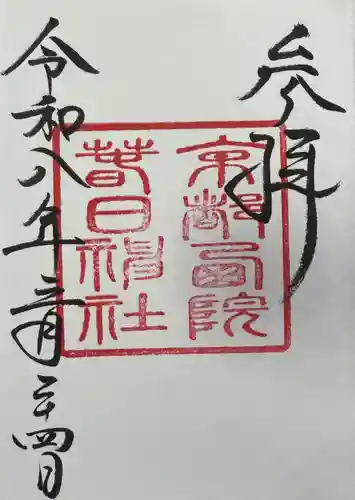 参拝
京都西院
春日神社
令和八年三月二十四日